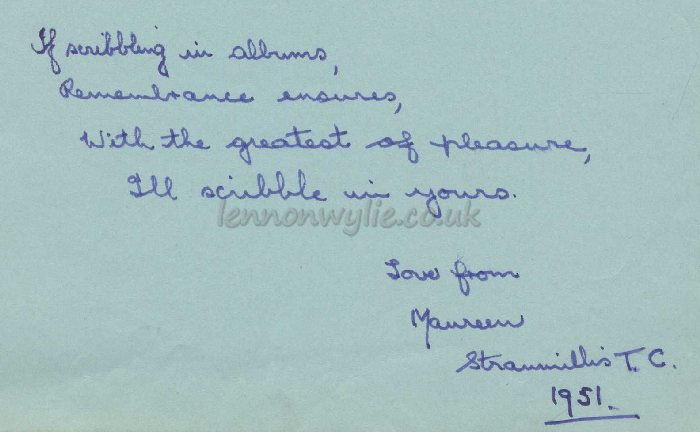 If scribbling in albums,
Remembrance ensures,
With the greatest of pleasure,
I'll scribble in yours.
lennonwylie.co.uk
Love from
Maureen
Stranmillis T. C.
1951.